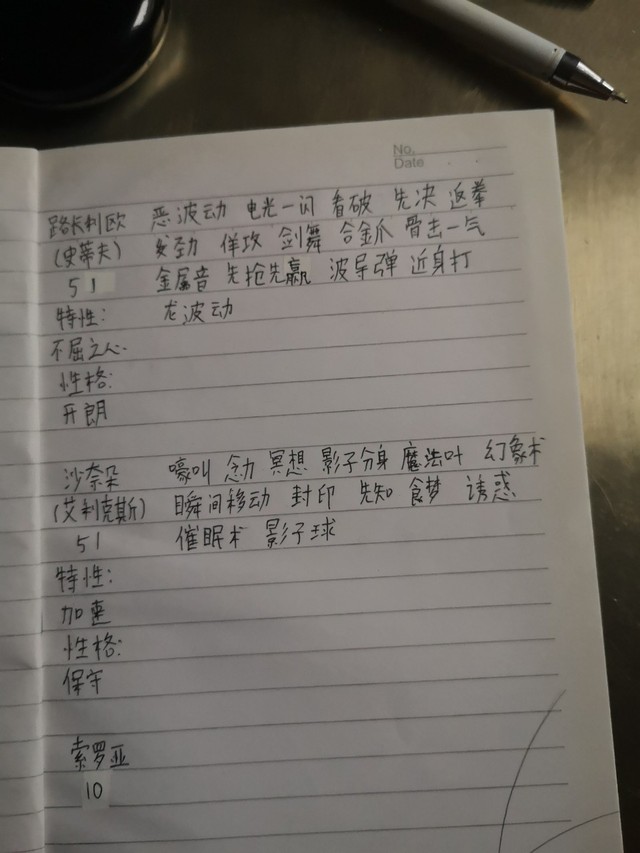 No.
Date
路卡利欧 恶波动 电光一闪 看破 先决 返拳
(史蒂夫) 发劲 佯攻 剑舞 合金爪 骨击一气
51 金属音 先抢先赢 波导弹 近身打
特性: 龙波动
不屈之心
性格:
开朗
沙奈朵 嚎叫 念力 冥想 影子分身 魔法叶 幻象术
(艾利克斯) 瞬间移动 封印 先知 食梦 诱惑
51 催眠术 影子球
特性:
加速
性格:
保守
索罗亚
10